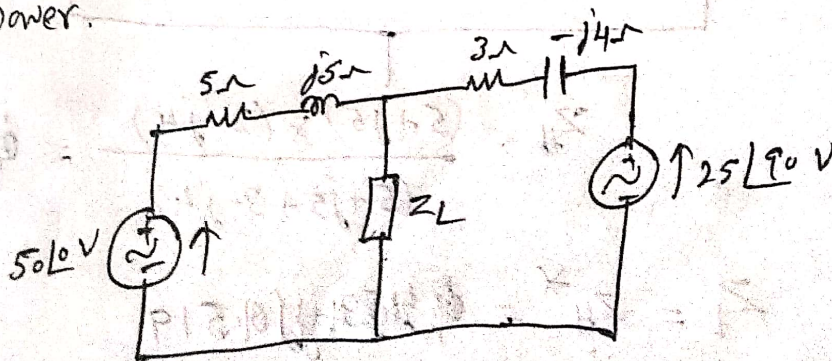 power.
5Ω j5Ω 3Ω -j4Ω
50∠0 V ↑ Z_L ↑ 25∠90 V